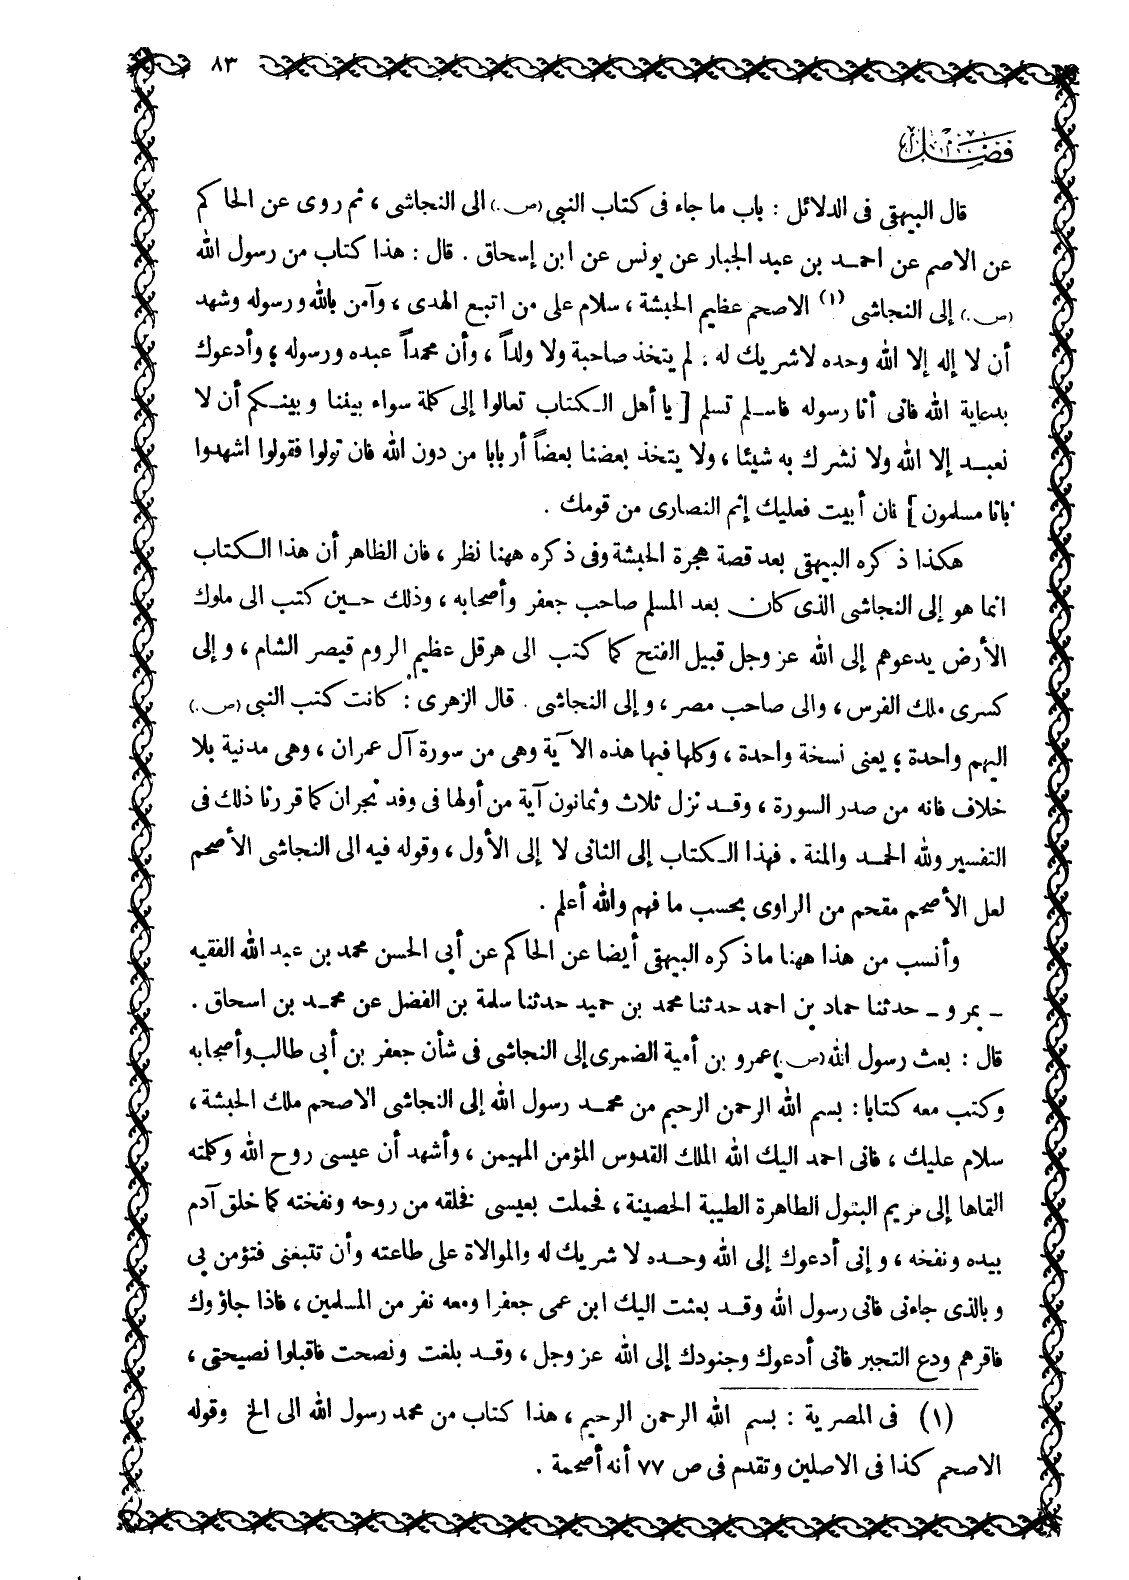 ٨٣
فصل
قال البيهقى فى الدلائل : باب ما جاء فى كتاب النبى (ص.) الى النجاشى ، ثم روى عن الحاكم
عن الاصم عن احمد بن عبد الجبار عن يونس عن ابن إسحاق . قال : هذا كتاب من رسول الله
(ص.) إلى النجاشى (١) الاصحم عظيم الحبشة ، سلام على من اتبع الهدى ، وآمن بالله ورسوله وشهد
أن لا إله إلا الله وحده لاشريك له . لم يتخذ صاحبة ولا ولداً ، وأن محمداً عبده ورسوله ؛ وأدعوك
بدعاية الله فانى أنا رسوله فاسلم تسلم [ يا أهل الكتاب تعالوا إلى كلمة سواء بيننا وبينكم أن لا
نعبد إلا الله ولا نشرك به شيئا ، ولا يتخذ بعضنا بعضاً أربابا من دون الله فان تولوا فقولوا اشهدوا
بانا مسلمون ] فان أبيت فعليك إثم النصارى من قومك .
هكذا ذكره البيهقى بعد قصة هجرة الحبشة وفى ذكره ههنا نظر ، فان الظاهر أن هذا الكتاب
انما هو إلى النجاشى الذى كان بعد المسلم صاحب جعفر وأصحابه ، وذلك حين كتب الى ملوك
الأرض يدعوهم إلى الله عز وجل قبيل الفتح كما كتب الى هرقل عظيم الروم قيصر الشام ، وإلى
كسرى ملك الفرس ، والى صاحب مصر ، وإلى النجاشى . قال الزهرى : كانت كتب النبى (ص.)
اليهم واحدة ؛ يعنى نسخة واحدة ، وكلها فيها هذه الآية وهى من سورة آل عمران ، وهى مدنية بلا
خلاف فانه من صدر السورة ، وقد نزل ثلاث وثمانون آية من أولها فى وفد نجران كما قررنا ذلك فى
التفسير ولله الحمد والمنة . فهذا الكتاب إلى الثانى لا إلى الأول ، وقوله فيه الى النجاشى الأصحم
لعل الأصحم مقحم من الراوى بحسب ما فهم والله أعلم .
وأنسب من هذا ههنا ماذكره البيهقى أيضا عن الحاكم عن أبي الحسن محمد بن عبد الله الفقيه
ـ بمرو ـ حدثنا حماد بن احمد حدثنا محمد بن حميد حدثنا سلمة بن الفضل عن محمد بن اسحاق .
قال : بعث رسول الله (ص.) عمرو بن أمية الضمرى إلى النجاشى فى شأن جعفر بن أبي طالب وأصحابه
وكتب معه كتابا : بسم الله الرحمن الرحيم من محمد رسول الله إلى النجاشى الاصحم ملك الحبشة ،
سلام عليك ، فانى احمد اليك الله الملك القدوس المؤمن المهيمن ، وأشهد أن عيسى روح الله وكلمته
القاها إلى مريم البتول الطاهرة الطيبة الحصينة ، فحملت بعيسى فخلقه من روحه ونفخته كما خلق آدم
بيده ونفخه ، وإنى أدعوك إلى الله وحده لا شريك له والموالاة على طاعته وأن تتبعنى فتؤمن بي
وبالذى جاءنى فانى رسول الله وقد بعثت اليك ابن عمى جعفرا ومعه نفر من المسلمين ، فاذا جاؤوك
فاقرهم ودع التجبر فانى أدعوك وجنودك إلى الله عز وجل ، وقد بلغت ونصحت فاقبلوا نصيحتى ،
(١) فى المصرية : بسم الله الرحمن الرحيم ، هذا كتاب من محمد رسول الله الى الخ وقوله
الاصحم كذا فى الاصلين وتقدم فى ص ٧٧ أنه أصحمة .